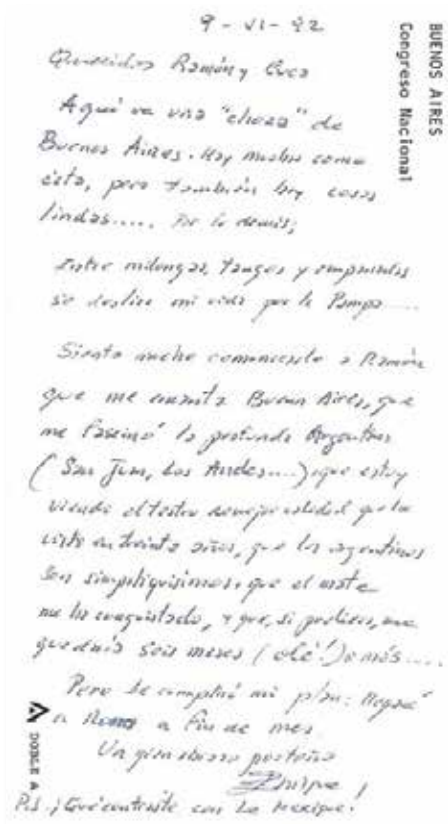 9 - VI - 92
Queridos Ramón y Cuca
Aquí va una "choza" de
Buenos Aires. Hay muchas como
ésta, pero también hay cosas
lindas..... Por lo demás,
Entre milongas, tangos y empanadas
se desliza mi vida por la Pampa.....
Siento mucho comunicarle a Ramón
que me encanta Buenos Aires, que
me fascinó la profunda Argentina
(San Juan, Los Andes....), que estoy
viendo el teatro de mejor calidad que he
visto en treinta años, que los argentinos
son simpatiquísimos, que el mate
me ha conquistado, y que, si pudiera, me
quedaría seis meses (olé!) o más.....
Pero he cumplido mi plan: llegaré
a Roma a fin de mes.
Un gran abrazo porteño
Enrique!
P.S. ¡Qué contraste con
BUENOS AIRES
Congreso Nacional
DOBLE A